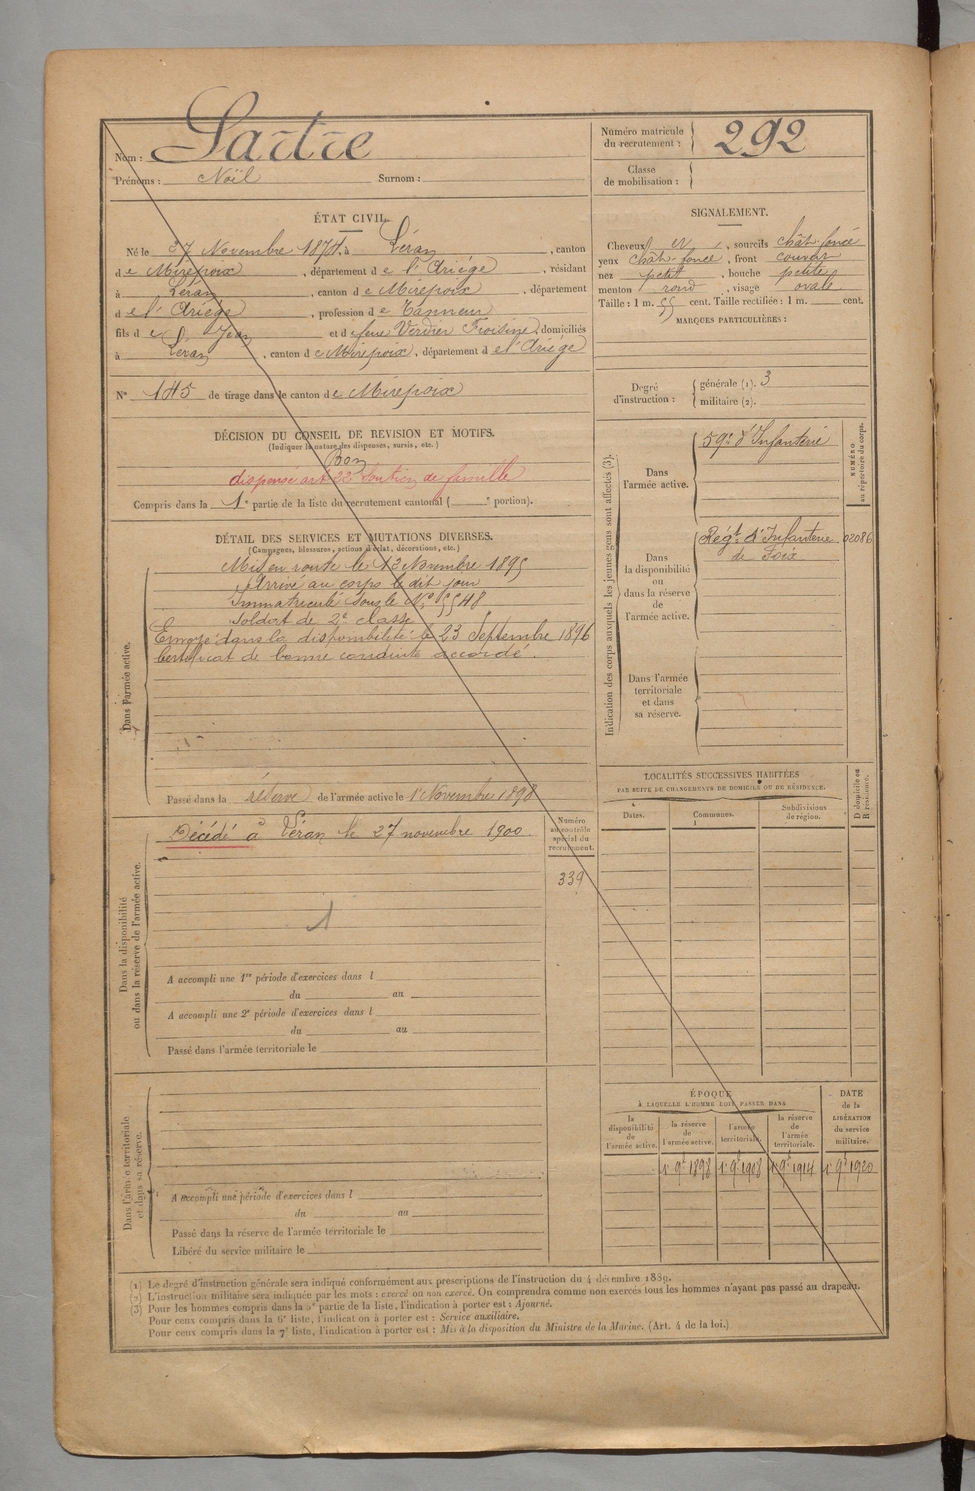 Nom : Sartre
Prénoms : Noël Surnom :
Numéro matricule du recrutement : 292
Classe de mobilisation :
ÉTAT CIVIL.
Né le 27 Novembre 1874, à Léran, canton
de Mirepoix, département de l'Ariège, résidant
à Léran, canton de Mirepoix, département
de l'Ariège, profession de Tanneur
fils de Jean et de feue Verdier Froisine, domiciliés
à Léran, canton de Mirepoix, département de l'Ariège
N° 145 de tirage dans le canton de Mirepoix
SIGNALEMENT.
Cheveux N, sourcils chât-foncé
yeux chât-foncé, front couvert
nez petit, bouche petite
menton rond, visage ovale
Taille : 1 m. 55 cent. Taille rectifiée : 1 m. cent.
MARQUES PARTICULIÈRES :
Degré d'instruction : générale (1). 3
militaire (2).
DÉCISION DU CONSEIL DE REVISION ET MOTIFS.
(Indiquer la nature des dispenses, sursis, etc.)
Bon
dispensé art 22 Soutien de famille
Compris dans la 1e partie de la liste du recrutement cantonal ( e portion).
DÉTAIL DES SERVICES ET MUTATIONS DIVERSES.
(Campagnes, blessures, actions d'éclat, décorations, etc.)
Dans l'armée active.
Mis en route le 13 Novembre 1895
Arrivé au corps le dit jour
Immatriculé sous le N° 5548
Soldat de 2e classe
Envoyé dans la disponibilité le 23 Septembre 1896
Certificat de bonne conduite accordé.
Passé dans la réserve de l'armée active le 1 Novembre 1898
Indication des corps auxquels les jeunes gens sont affectés (3).
NUMÉRO au répertoire du corps.
Dans l'armée active.
59e d'Infanterie
Dans la disponibilité ou dans la réserve de l'armée active.
Régt d'Infanterie 02086
de Foix
Dans l'armée territoriale et dans sa réserve.
Dans la disponibilité ou dans la réserve de l'armée active.
Décédé à Léran le 27 novembre 1900
Numéro au contrôle spécial du recrutement.
339
1
A accompli une 1re période d'exercices dans l
du au
A accompli une 2e période d'exercices dans l
du au
Passé dans l'armée territoriale le
LOCALITÉS SUCCESSIVES HABITÉES
PAR SUITE DE CHANGEMENTS DE DOMICILE OU DE RÉSIDENCE.
Dates. Communes. Subdivisions de région. D domicile ou R résidence.
Dans l'armée territoriale et dans sa réserve.
A accompli une période d'exercices dans l
du au
Passé dans la réserve de l'armée territoriale le
Libéré du service militaire le
ÉPOQUE
À LAQUELLE L'HOMME DOIT PASSER DANS
la disponibilité de l'armée active. la réserve de l'armée active. l'armée territoriale. la réserve de l'armée territoriale.
DATE de la LIBÉRATION du service militaire.
1er 9bre 1898 1er 9bre 1908 1er 9bre 1914 1er 9bre 1920
(1) Le degré d'instruction générale sera indiqué conformément aux prescriptions de l'instruction du 4 décembre 1889.
(2) L'instruction militaire sera indiquée par les mots : exercé ou non exercé. On comprendra comme non exercés tous les hommes n'ayant pas passé au drapeau.
(3) Pour les hommes compris dans la 5e partie de la liste, l'indication à porter est : Ajourné.
Pour ceux compris dans la 6e liste, l'indication à porter est : Service auxiliaire.
Pour ceux compris dans la 7e liste, l'indication à porter est : Mis à la disposition du Ministre de la Marine. (Art. 4 de la loi.)